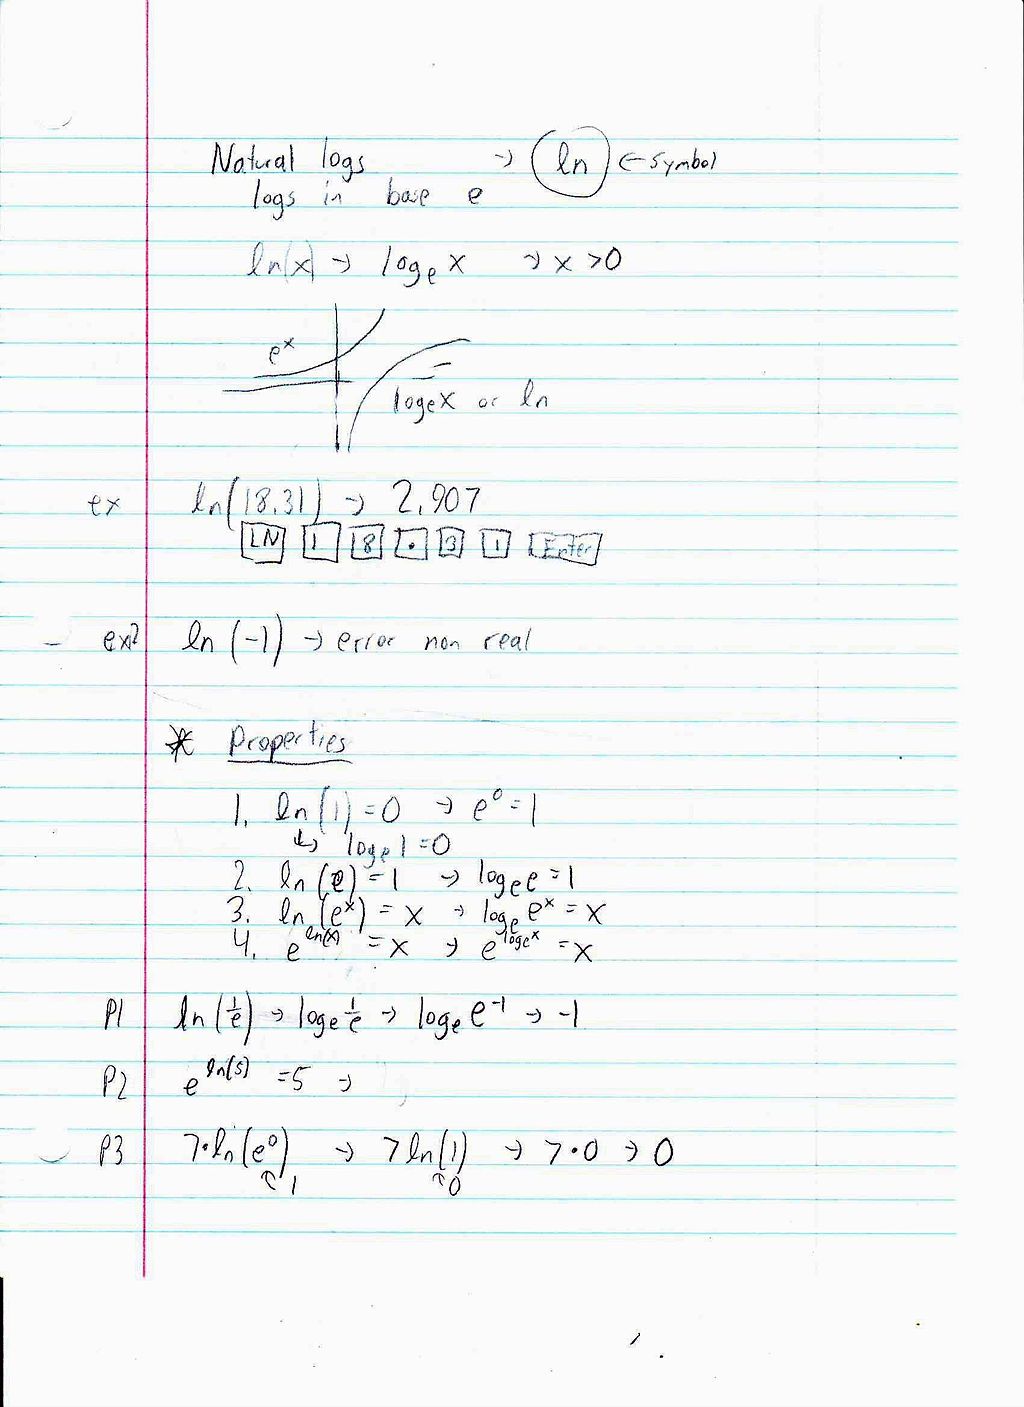 Natural logs → ln ← symbol
logs in base e
ln(x) → logₑ x → x > 0
eˣ
logₑx or ln
ex ln(18.31) → 2.907
LN 1 8 . 3 1 Enter
ex2 ln (-1) → error non real
* Properties
1. ln(1) = 0 → e⁰ = 1
↳ logₑ1 = 0
2. ln(e) = 1 → logₑe = 1
3. ln(eˣ) = x → logₑ eˣ = x
4. e^ln(x) = x → e^logₑx = x
P1 ln(1/e) → logₑ 1/e → logₑ e⁻¹ → -1
P2 e^ln(5) = 5 →
P3 7·ln(e⁰) → 7 ln(1) → 7·0 → 0
↑ 1 ↑ 0